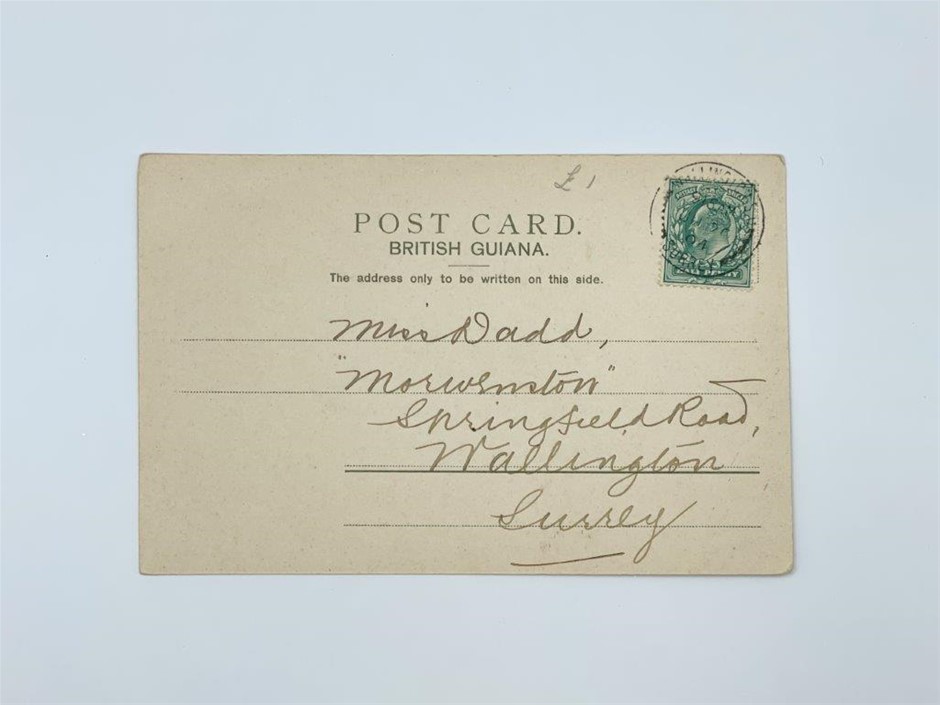 £1
POST CARD.
BRITISH GUIANA.
The address only to be written on this side.
Miss Dadd,
"Morwenston"
Springfield Road,
Wallington
Surrey